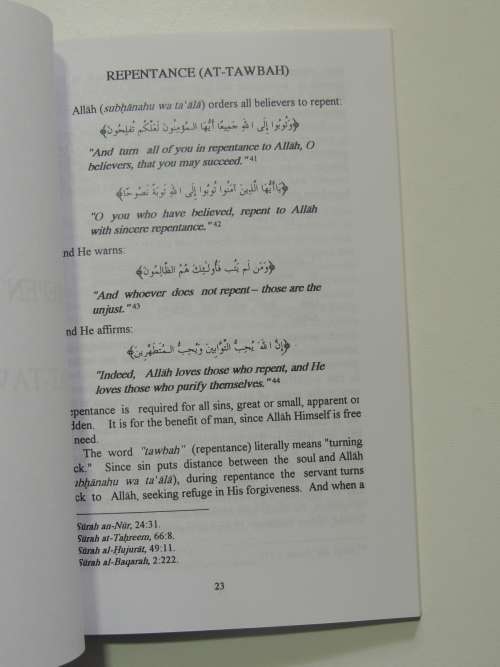 REPENTANCE (AT-TAWBAH)
Allāh (subḥānahu wa taʿālā) orders all believers to repent:
﴿وَتُوبُوا إِلَى اللهِ جَمِيعًا أَيُّهَا الـمُؤْمِنُونَ لَعَلَّكُم تُفْلِحُونَ﴾
"And turn all of you in repentance to Allāh, O
believers, that you may succeed."41
﴿يَا أَيُّهَا الَّذِينَ آمَنُوا تُوبُوا إِلَى اللهِ تَوبَةً نَصُوحًا﴾
"O you who have believed, repent to Allāh
with sincere repentance."42
nd He warns:
﴿وَمَن لَم يَتُب فَأُولَـئِكَ هُمُ الظَّالِمُونَ﴾
"And whoever does not repent – those are the
unjust."43
nd He affirms:
﴿إِنَّ اللهَ يُحِبُّ التَّوَّابِينَ وَيُحِبُّ الـمُتَطَهِّرِينَ﴾
"Indeed, Allāh loves those who repent, and He
loves those who purify themselves."44
epentance is required for all sins, great or small, apparent or
dden. It is for the benefit of man, since Allāh Himself is free
need.
The word "tawbah" (repentance) literally means "turning
ck." Since sin puts distance between the soul and Allāh
ubḥānahu wa taʿālā), during repentance the servant turns
ck to Allāh, seeking refuge in His forgiveness. And when a
Sūrah an-Nūr, 24:31.
Sūrah at-Taḥreem, 66:8.
Sūrah al-Ḥujurāt, 49:11.
Sūrah al-Baqarah, 2:222.
23